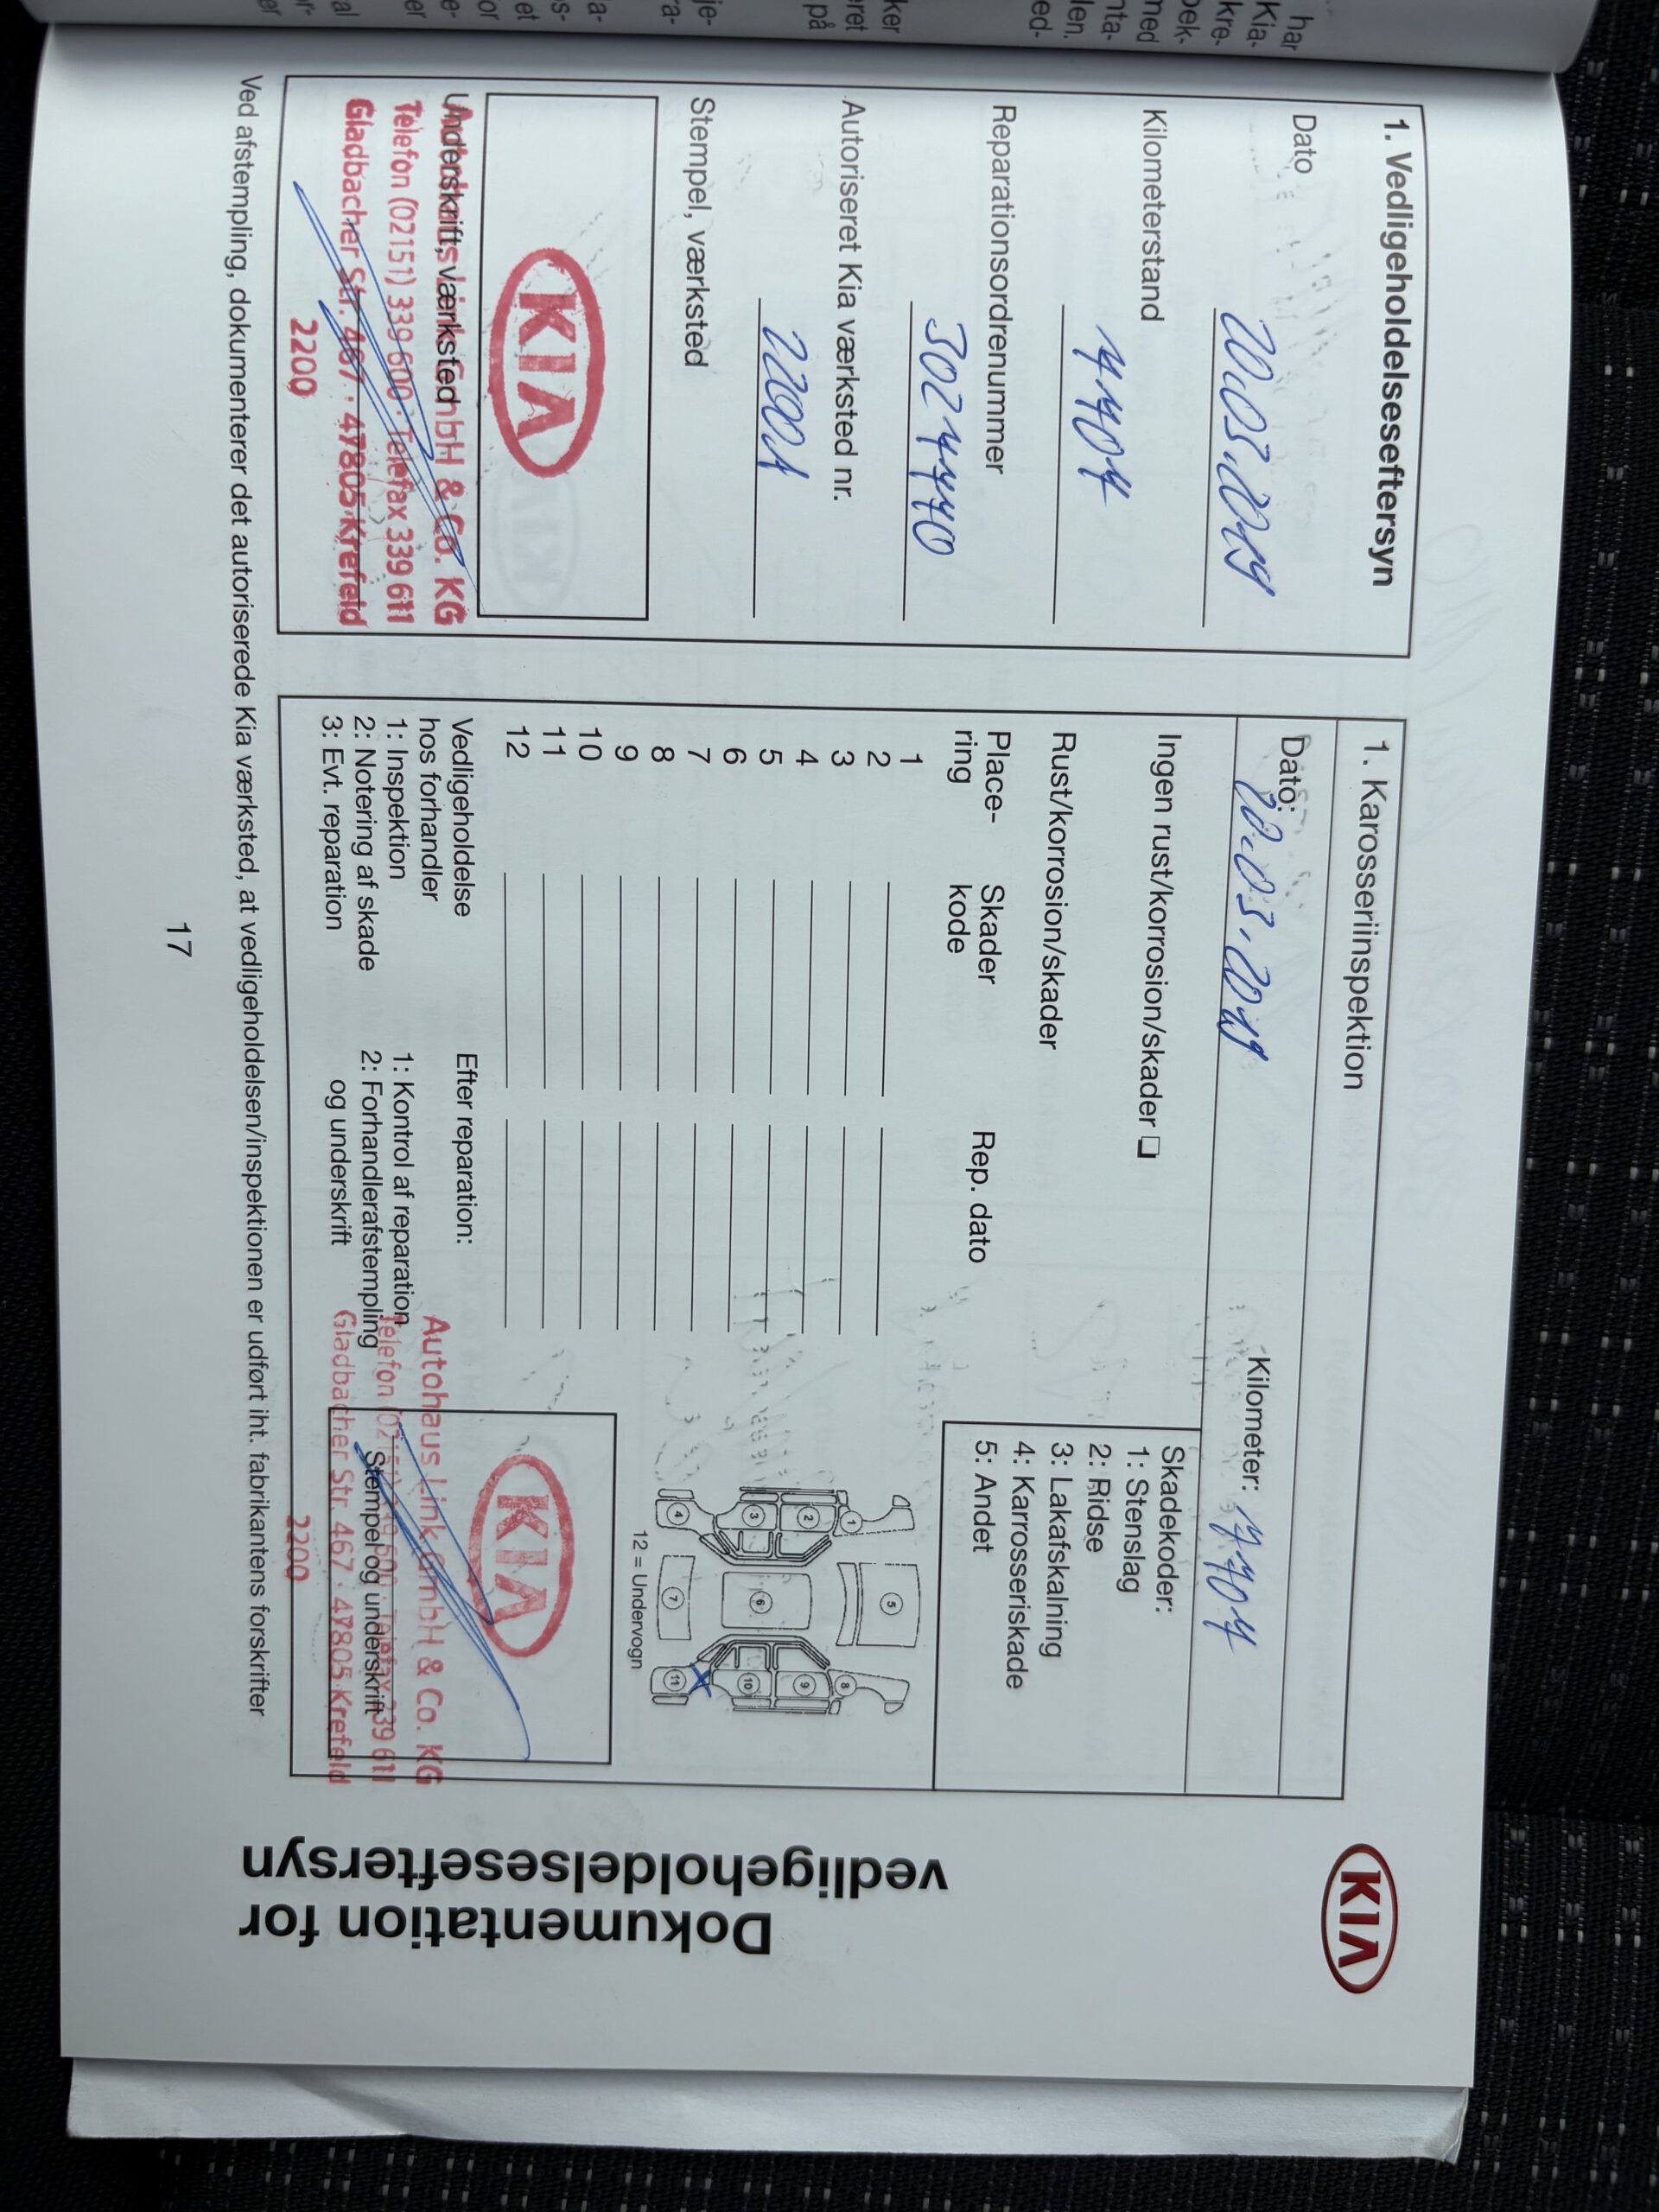 KIA
Dokumentation for
vedligeholdelseseftersyn
1. Vedligeholdelseseftersyn
Dato
20.03.2019
Kilometerstand
Reparationsordrenummer
Autoriseret Kia værksted nr.
22001
Stempel, værksted
KIA
Underskrift, værksted
GmbH & Co. KG
Telefon (02151) 339 600 · Telefax 339 611
Gladbacher Str. 467 · 47805 Krefeld
2200
1. Karosseriinspektion
Dato: 20.03.2019
Kilometer:
Ingen rust/korrosion/skader
Rust/korrosion/skader
Place-
ring
Skader
kode
Rep. dato
1
2
3
4
5
6
7
8
9
10
11
12
Skadekoder:
1: Stenslag
2: Ridse
3: Lakafskalning
4: Karrosseriskade
5: Andet
1
2
3
4
5
6
7
8
9
10
11
12 = Undervogn
Vedligeholdelse
hos forhandler
1: Inspektion
2: Notering af skade
3: Evt. reparation
Efter reparation:
1: Kontrol af reparation
2: Forhandlerafstempling
og underskrift
KIA
Autohaus Link GmbH & Co. KG
Telefon (02151) 339 600 · Telefax 339 611
Stempel og underskrift
Gladbacher Str. 467 · 47805 Krefeld
2200
Ved afstempling, dokumenterer det autoriserede Kia værksted, at vedligeholdelsen/inspektionen er udført iht. fabrikantens forskrifter
17